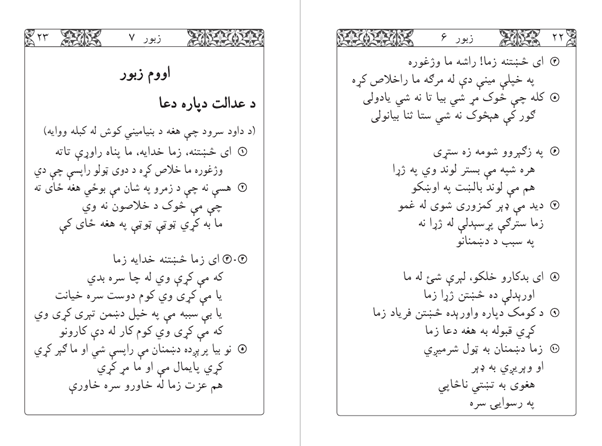 ۲۲ زبور ۶
۴ ای څښتنه زما! راشه ما وژغوره
په خپلې مينې دې له مرګه ما راخلاص کړه
۵ کله چې څوک مړ شي بيا تا نه شي يادولی
ګور کې هېڅوک نه شي ستا ثنا بيانولی
۶ په زګېروو شومه زه ستړی
هره شپه مې بستر لوند وي په ژړا
هم مې لوند بالښت په اوښکو
۷ ديد مې ډېر کمزوری شوی له غمو
زما سترګې پړسېدلې له ژړا نه
په سبب د دښمنانو
۸ ای بدکارو خلکو، لېرې شئ له ما
اورېدلې ده څښتن ژړا زما
۹ د کومک دپاره واورېده څښتن فرياد زما
کړې قبوله به هغه دعا زما
۱۰ زما دښمنان به ټول شرميږي
او وېريږي به ډېر
هغوی به تښتي ناڅاپي
په رسوايۍ سره
زبور ۷ ۲۳
اووم زبور
د عدالت دپاره دعا
(د داود سرود چې هغه د بنياميني کوش له کبله ووايه)
۱ ای څښتنه، زما خدايه، ما پناه راوړې تاته
وژغوره ما خلاص کړه د دوی ټولو راپسې چې دي
۲ هسې نه چې د زمرو په شان مې بوځي هغه ځای ته
چې مې څوک د خلاصون نه وي
ما به کړي ټوټې ټوټې په هغه ځای کې
۳-۴ ای زما څښتنه خدايه زما
که مې کړې وي له چا سره بدي
يا مې کړی وي کوم دوست سره خيانت
يا بې سببه مې په خپل دښمن تېری کړی وي
که مې کړی وي کوم کار له دې کارونو
۵ نو بيا پرېږده دښمنان مې راپسې شي او ما ګېر کړي
کړي پايمال مې او ما مړ کړي
هم عزت زما له خاورو سره خاورې